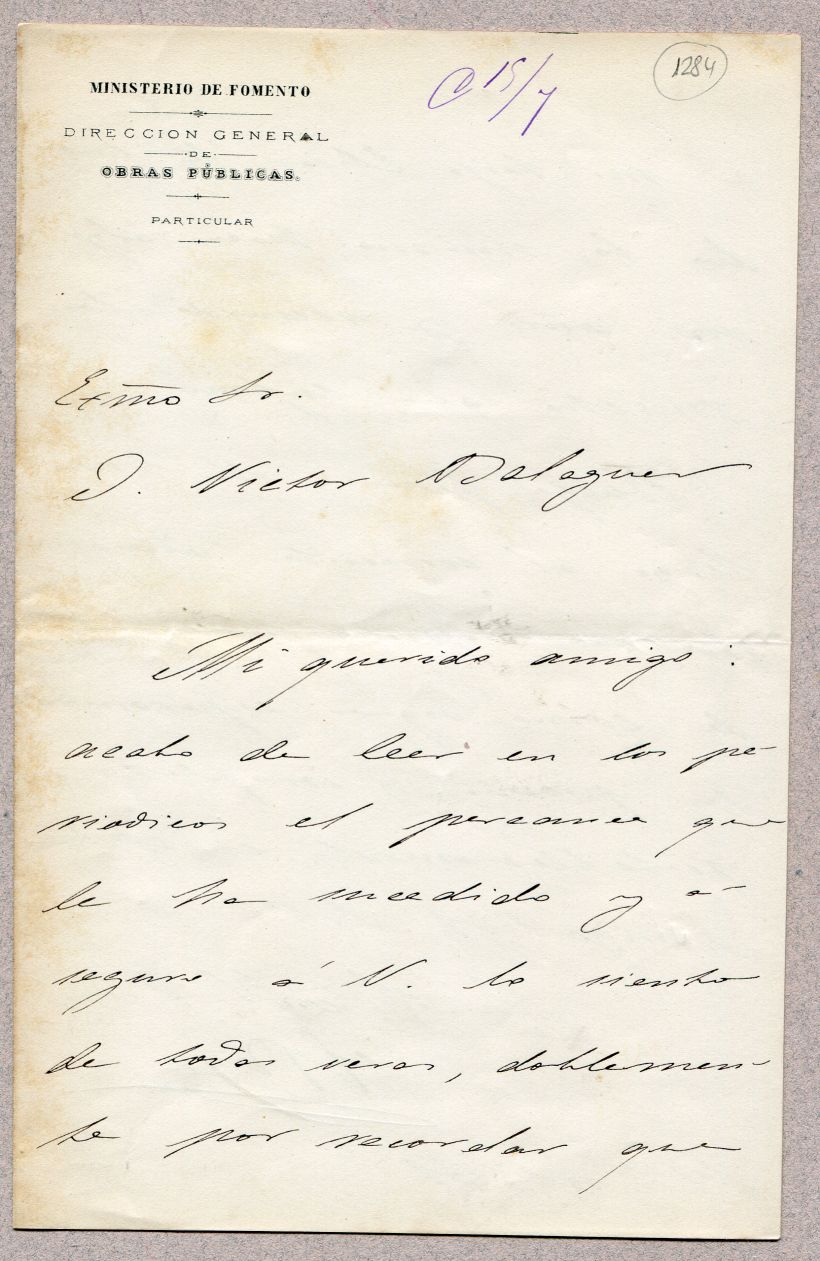 MINISTERIO DE FOMENTO
DIRECCION GENERAL
DE
OBRAS PÚBLICAS.
PARTICULAR
C 15/7
1284
Exmo Sr.
D. Victor Balaguer
Mi querido amigo:
acabo de leer en los pe-
riodicos el percance que
le ha sucedido y a-
seguro á V. lo siento
de todas veras, doblemen-
te por recordar que